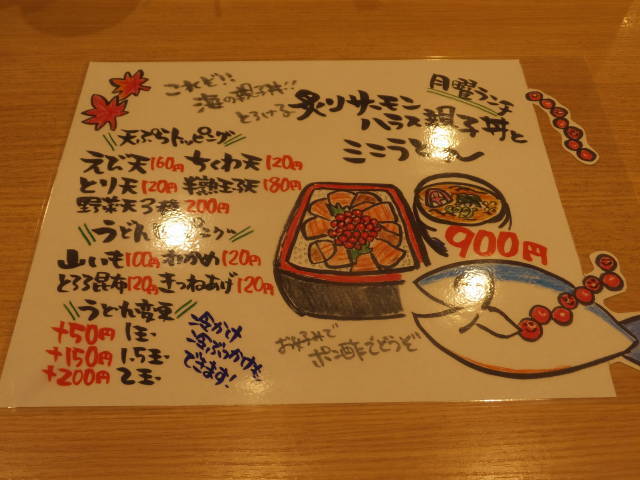 月曜ランチ
これぞ!!
海の親子丼!!
とろける
炙りサーモン
ハラス親子丼と
ミニうどん
900円
天ぷらトッピング
えび天160円 ちくわ天120円
とり天120円 半熟玉子天180円
野菜天3種200円
うどん
山いも100円 わかめ120円
とろろ昆布120円 きつねあげ120円
うどん変更
+50円 1玉
+150円 1.5玉
+200円 2玉
冷かけ
冷ぶっかけも
できます!
お好みで
ポン酢でどうぞ